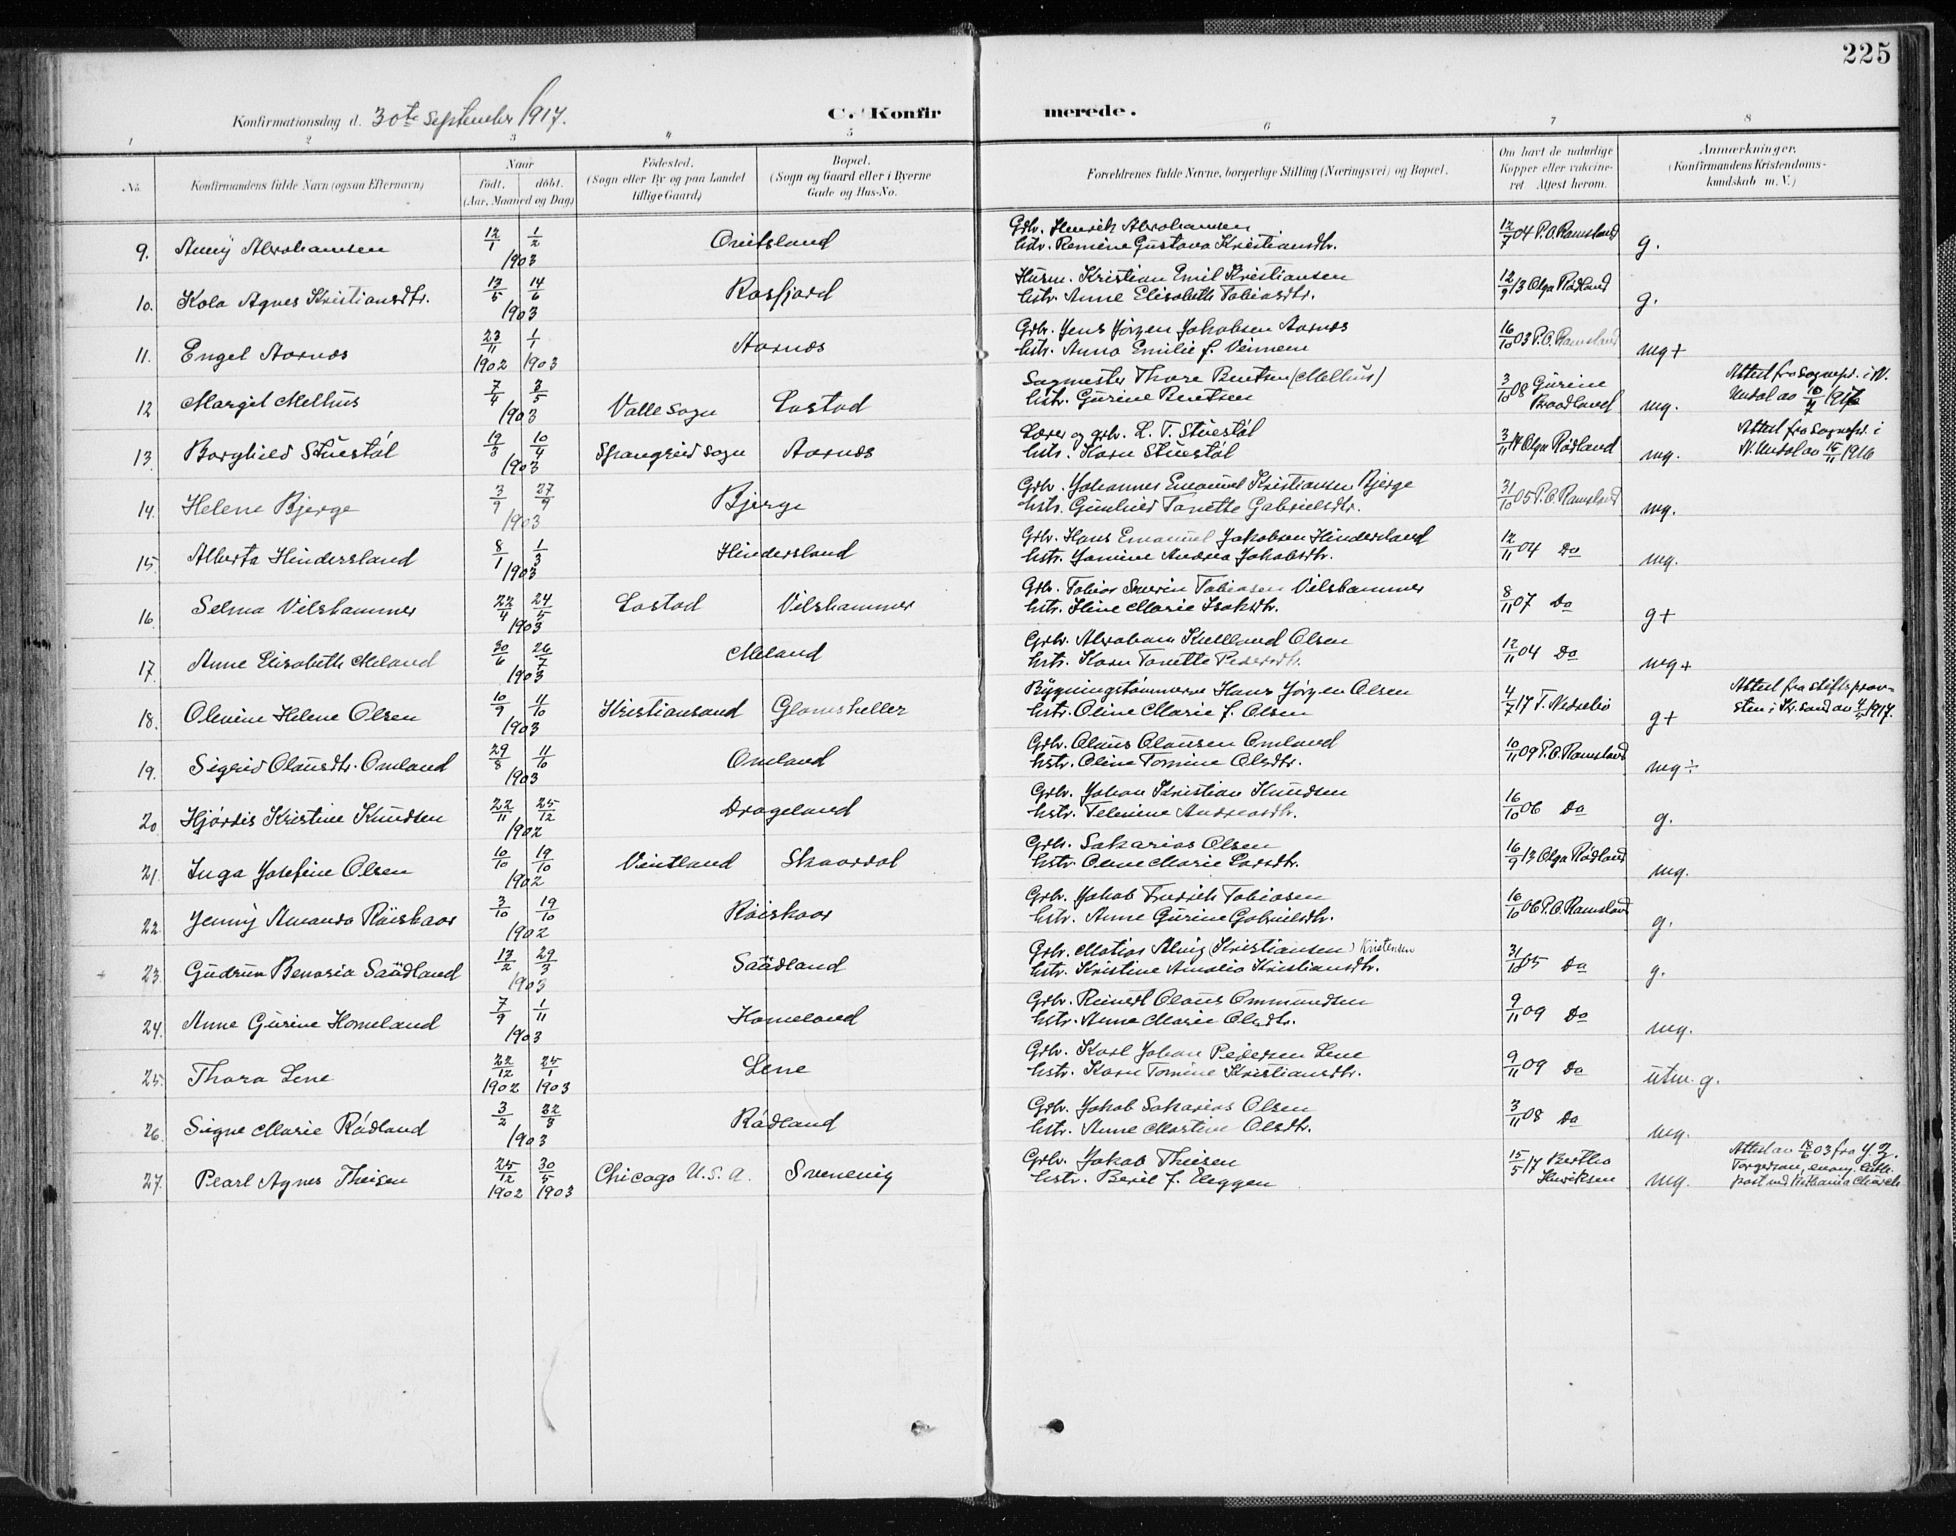 225
Konfirmationsdag d. 30te September 1917.
C. Konfirmerede.
1 2 3 4 5 6 7 8
No. Konfirmandens fulde Navn (ogsaa Efternavn) Naar født. døbt. (Aar, Maaned og Dag) Fødested. (Sogn eller By og paa Landet tillige Gaard) Bopæl. (Sogn og Gaard eller i Byerne Gade og Hus-No. Forældrenes fulde Navne, borgerlige Stilling (Næringsvei) og Bopæl. Om havt de naturlige Kopper eller vakcineret. Attest herom. Anmærkninger. (Konfirmandens Kristendomskundskab m. V.)
9. Anny Abrahamsen 12/1 1/2 1903 Gdbr. Henrik Abrahamsen
hstr. Remine Gustava Kristiansdtr. 12/7 04 P.O. Ramsland g.
10. Kola Agnes Kristiansdtr. 13/5 14/6 1903 Rosfjord Husm. Kristian Emil Kristiansen
hstr. Anne Elisabeth Tobiasdtr. 12/9 13 Olga Rødland g.
11. Engel Aarnæs 23/11 1902 1/1 1903 Aarnæs Gdbr. Jens Jørgen Jakobsen Aarnæs
hstr. Anna Emilie f. 16/10 03 P.O. Ramsland mg+
12 Margit Melhus 7/4 3/5 1903 Valle sogn Lastad Sagmester Thore Bentsen (Melhus)
hstr. Gurine Bentsen 3/10 08 Gurine Braadland mg. Attest fra Sognepr. i N. Undal av
13. Borghild Stuestøl 19/3 10/4 1903 Spangreid sogn Aarnæs Lærer og gdbr. L. T. Stuestøl
hstr. Karn Stuestøl 3/11 14 Olga Rødland mg. Attest fra Sognepr. i N. Undal av 15/11 1916
14. Helene Bjerge 3/9 27/9 1903 Bjerge Gdbr. Johannes Emanuel Kristiansen Bjerge
hstr. Gunhild Tonette Gabrielsdtr. 31/10 05 P.O. Ramsland mg.
15. Alberta Hindersland 8/1 1/3 1903 Hindersland Gdbr. Hans Emanuel Jakobsen Hindersland
hstr. Jomine Andrea Jakobsdtr. 12/11 04 Do mg.
16. Selma Vilshammer 22/4 24/5 1903 Lastad Vilshammer Gdbr. Tobias Severin Tobiasen Vilshammer
hstr. Stine Marie Isaksdtr. 8/11 07 Do g+
17. Anne Elisabeth Meland 30/6 26/7 1903 Meland Gdbr. Abraham Kielland Olsen
hstr. Karn Tonette Pedersdtr. 12/11 04 Do mg+
18. Olevine Helene Olsen 10/9 11/10 1903 Kristiansand Glomsheller Bygningstømmerm Hans Jørgen Olsen
hstr. Oline Marie f. Olsen 4/7 17 T. Nedrebø g+ Attest fra stiftsprovsten i Kr.sand av 4/5 1917.
19. Sigrid Olausdtr. Omland 29/8 11/10 1903 Omland Gdbr. Olaus Olausen Omland
hstr. Oline Tomine Olsdtr. 10/11 09 P.O. Ramsland mg÷
20. Hjørdis Kristine Knudsen 22/11 25/12 1902 Drageland Gdbr. Johan Kristian Knudsen
hstr. Telemine Andreasdtr. 16/10 06 Do g.
21. Inga Josefine Olsen 10/10 19/10 1902 Vintland Skaardal Gdbr. Sakarias Olsen
hstr Oline Marie Larsdtr. 16/9 13 Olga Rødland mg.
22. Jenny Amanda Røiskaar 3/10 19/10 1902 Røiskaar Gdbr. Jakob Fredrik Tobiasen
hstr. Anne Gurine Gabrielsdtr. 16/10 06 P.O. Ramsland g.
23. Gudrun Benaria Saädland 13/2 29/3 1903 Saädland Gdbr. Matias Alvig (Kristiansen) Kristensen
hstr. Kristine Amalia Kristiansdtr. 31/10 05 Do g.
24. Anne Gurine Homeland 7/9 1/11 1903 Homeland Gdbr. Reinert Olaus Ommundsen
hstr. Anna Marie Olsdtr. 9/11 09 Do mg.
25. Thora Lene 22/12 1902 25/1 1903 Lene Gdbr. Karl Johan Pedersen Lene
hstr. Karn Tomine Kristiansdtr. 9/11 09 Do utm. g.
26. Signe Marie Rødland 3/2 22/3 1903 Rødland Gdbr. Jakob Sakarias Olsen
hstr. Anne Martine Olsdtr. 3/11 08 Do mg.
27. Pearl Agnes Theisen 25/12 1902 30/5 1903 Chicago U.S.A. Svenevig Gdbr. Jakob Theisen
hstr. Beril f. Eleggen 15/5 17 Bertha Henriksen mg. Attest av 18/6 03 fra J. Z. Torgersen, evang. luth. past ved Bethania Church